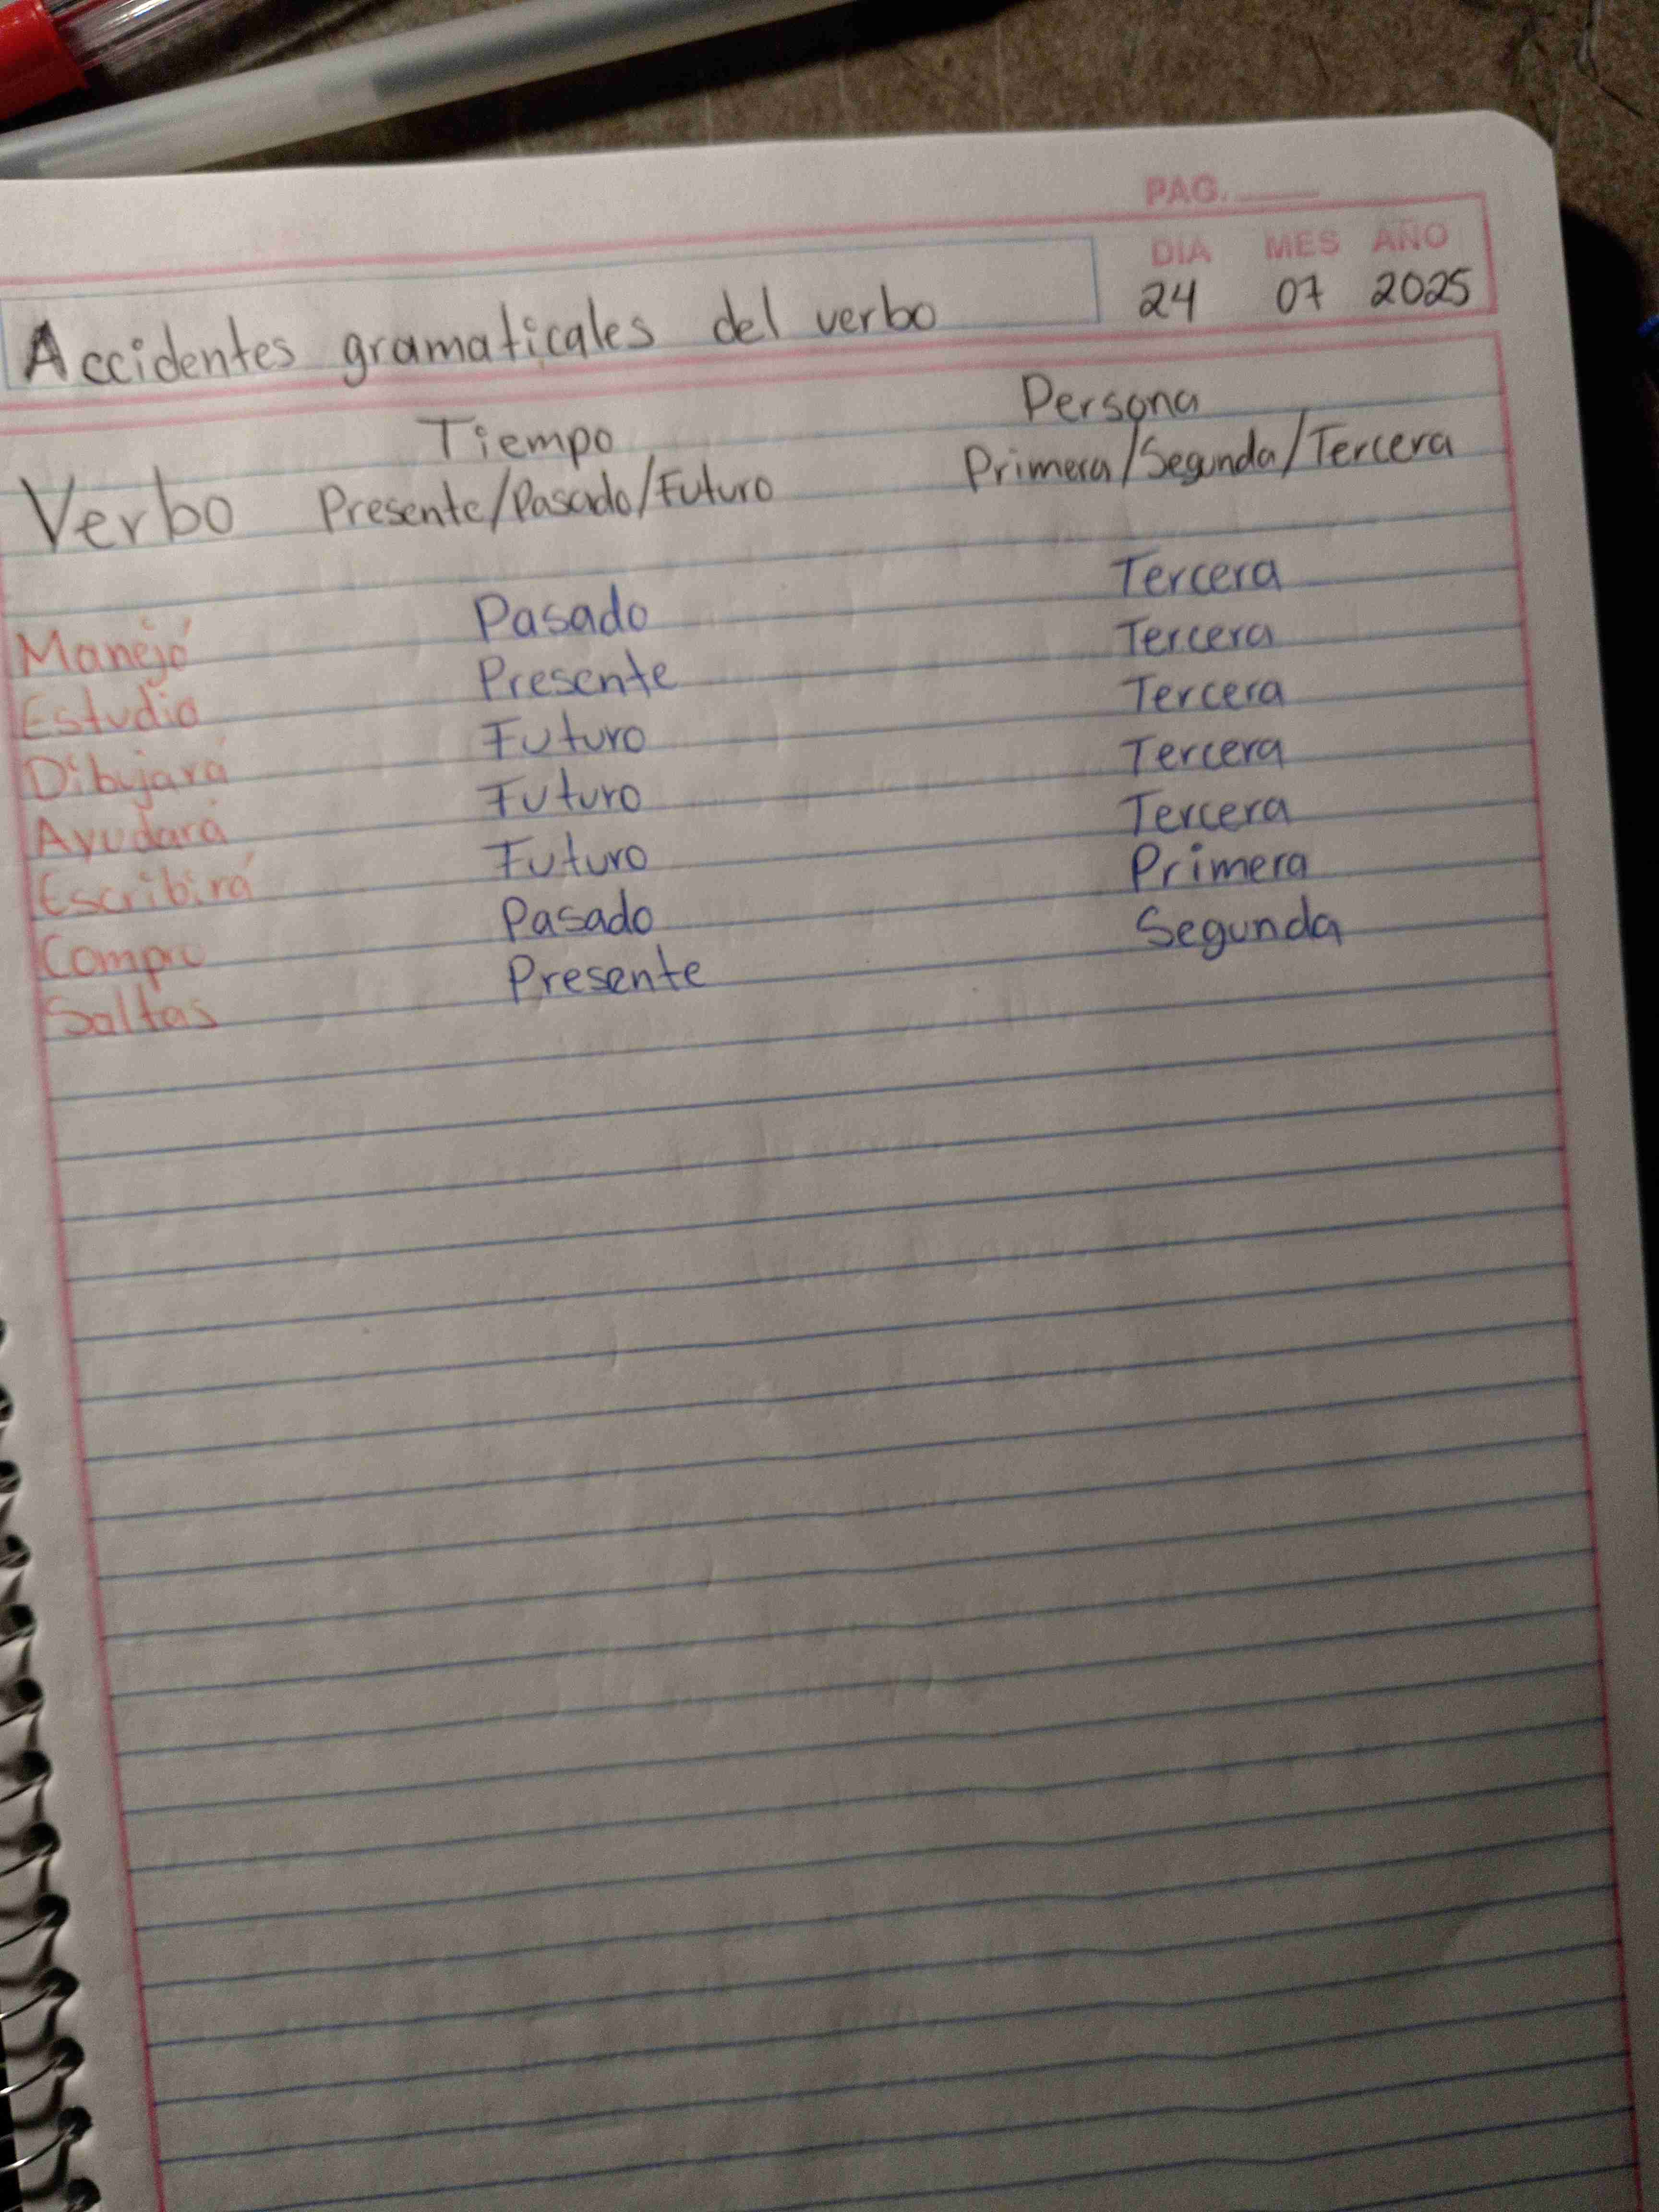 PAG.
DIA MES AÑO
24 07 2025
Accidentes gramaticales del verbo
Tiempo Persona
Verbo Presente/Pasado/Futuro Primera/Segunda/Tercera
Manejó Pasado Tercera
Estudia Presente Tercera
Dibujará Futuro Tercera
Ayudará Futuro Tercera
Escribirá Futuro Tercera
Pasado Primera
Saltas Presente Segunda